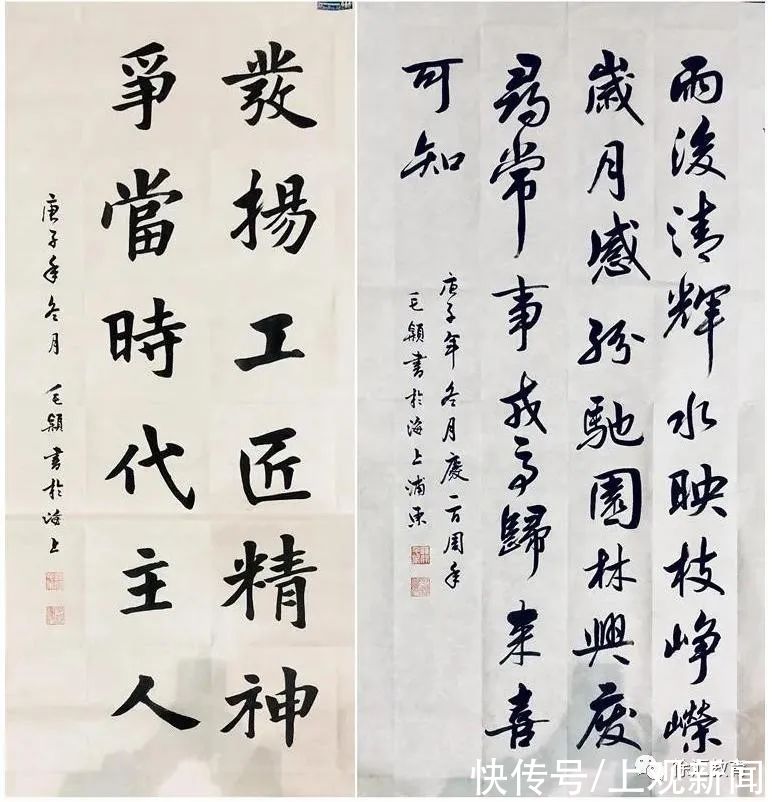 發揚工匠精神
爭當時代主人
庚子年冬月 毛穎書於海上
雨後清輝水映枝崢嶸
歲月感紛馳園林興廢
尋常事歸來喜
可知
庚子年冬月慶一百周年
毛穎書於海上浦東
快传号/上观新闻